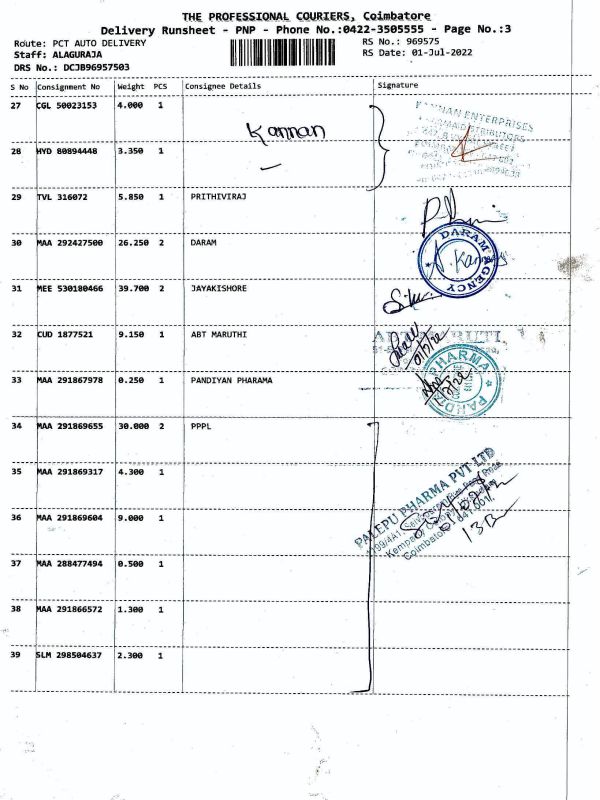 THE PROFESSIONAL COURIERS, Coimbatore
Delivery Runsheet - PNP - Phone No.:0422-3505555 - Page No.:3
Route: PCT AUTO DELIVERY RS No.: 969575
Staff: ALAGURAJA RS Date: 01-Jul-2022
DRS No.: DCJB96957503
S No Consignment No Weight PCS Consignee Details Signature
27 CGL 50023153 4.000 1
Kannan
KANNAN ENTERPRISES
28 HYD 80894448 3.350 1
29 TVL 316072 5.850 1 PRITHIVIRAJ
30 MAA 292427500 26.250 2 DARAM
DARAM AGENCY
31 MEE 530180466 39.700 2 JAYAKISHORE
32 CUD 1877521 9.150 1 ABT MARUTHI
33 MAA 291867978 0.250 1 PANDIYAN PHARAMA
PHARMA
34 MAA 291869655 30.000 2 PPPL
35 MAA 291869317 4.300 1
PALEPU PHARMA PVT LTD
Coimbatore - 641 001.
36 MAA 291869604 9.000 1
37 MAA 288477494 0.500 1
38 MAA 291866572 1.300 1
39 SLM 298504637 2.300 1